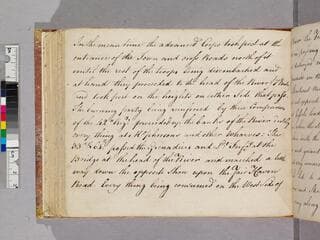 In the mean time the advanced Corps took post at the
entrance of the Town and cross Roads north of it
until the rest of the troops being disembarked and
at hand they proceeded to the head of the River
and took post on the heights on either side that pass
The burning party being reinforced by three companies
of the 42d Regt. proceeded up the bank of the River
every thing at McPhersons and other wharves: The
33d & 64th passed the Grenadiers and Lt. Infy. at the
Bridge at the head of the River and marched a little
way down the opposite Shore upon the Fair Haven
Road. Every thing being consumed on the West side of